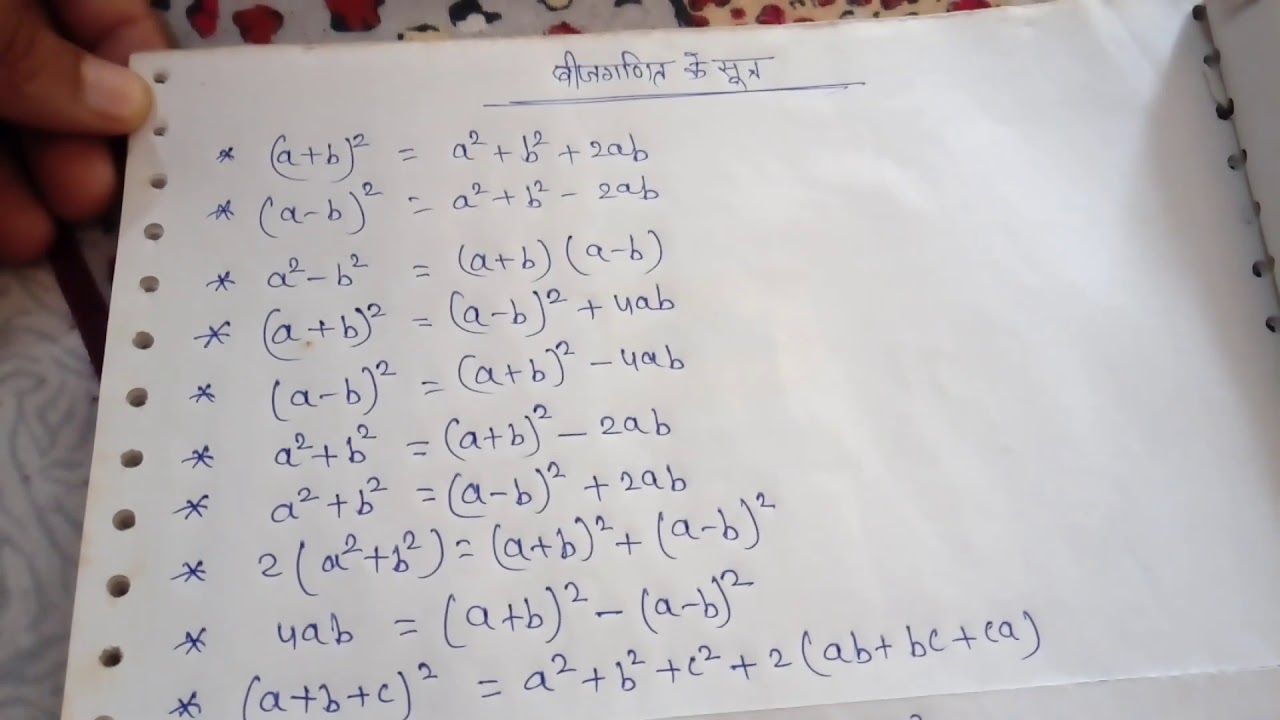 बीजगणित के सूत्र
* (a+b)² = a² + b² + 2ab
* (a-b)² = a² + b² - 2ab
* a² - b² = (a+b) (a-b)
* (a+b)² = (a-b)² + 4ab
* (a-b)² = (a+b)² - 4ab
* a² + b² = (a+b)² - 2ab
* a² + b² = (a-b)² + 2ab
* 2(a²+b²) = (a+b)² + (a-b)²
* 4ab = (a+b)² - (a-b)²
* (a+b+c)² = a² + b² + c² + 2(ab+bc+ca)